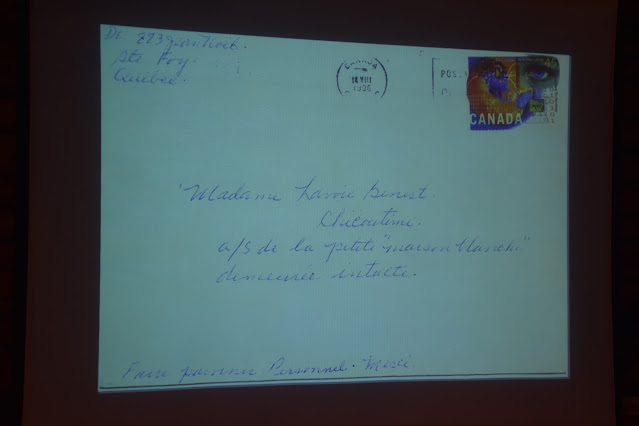 De 273 Jean Noël.
Ste Foy.
Québec.
CANADA
14 VIII
1996
POS
CANADA
Madame Lavoie Genest.
Chicoutimi.
a/s de la petite "maison blanche"
demeurée intacte.
Faire parvenir Personnel. Merci.